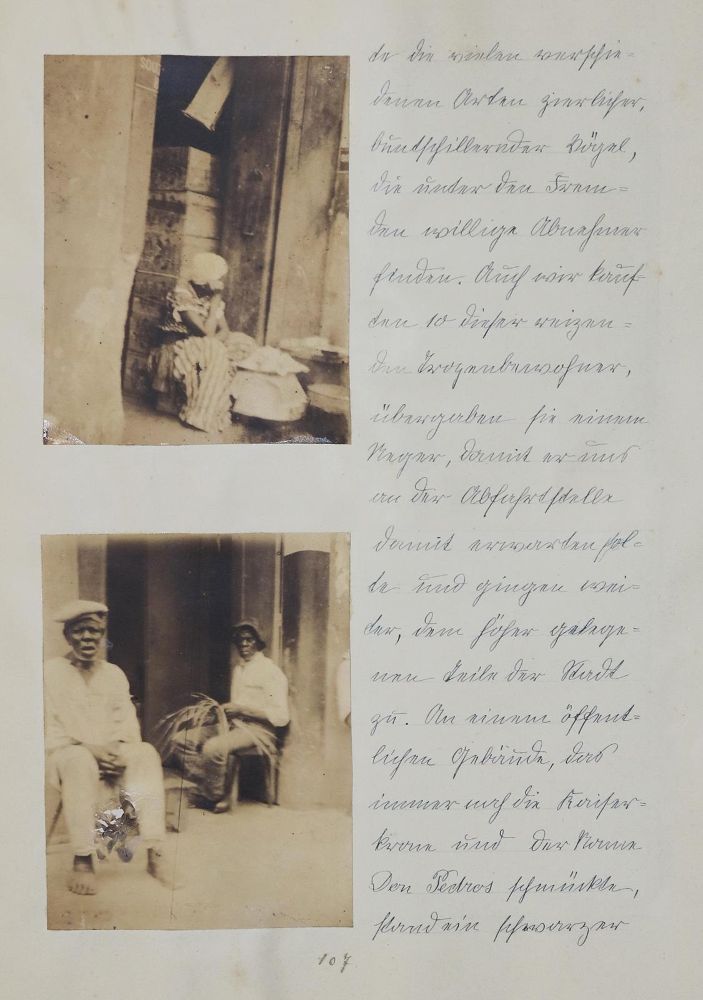 te die vielen verschie=
denen Arten zierlicher,
buntschillernder Vögel,
die unter den Frem=
den willige Abnehmer
finden. Auch wir kauf=
ten 10 dieser reizen=
den Tropenbewohner,
übergaben sie einem
Neger, damit er uns
an der Abfahrtstelle
damit erwarten sol=
te und gingen wei=
ter, dem höher gelege=
nen Teile der Stadt
zu. An einem öffent=
lichen Gebäude, das
immer noch die Kaiser=
krone und der Name
Don Pedros schmückte,
stand ein schwarzer
107